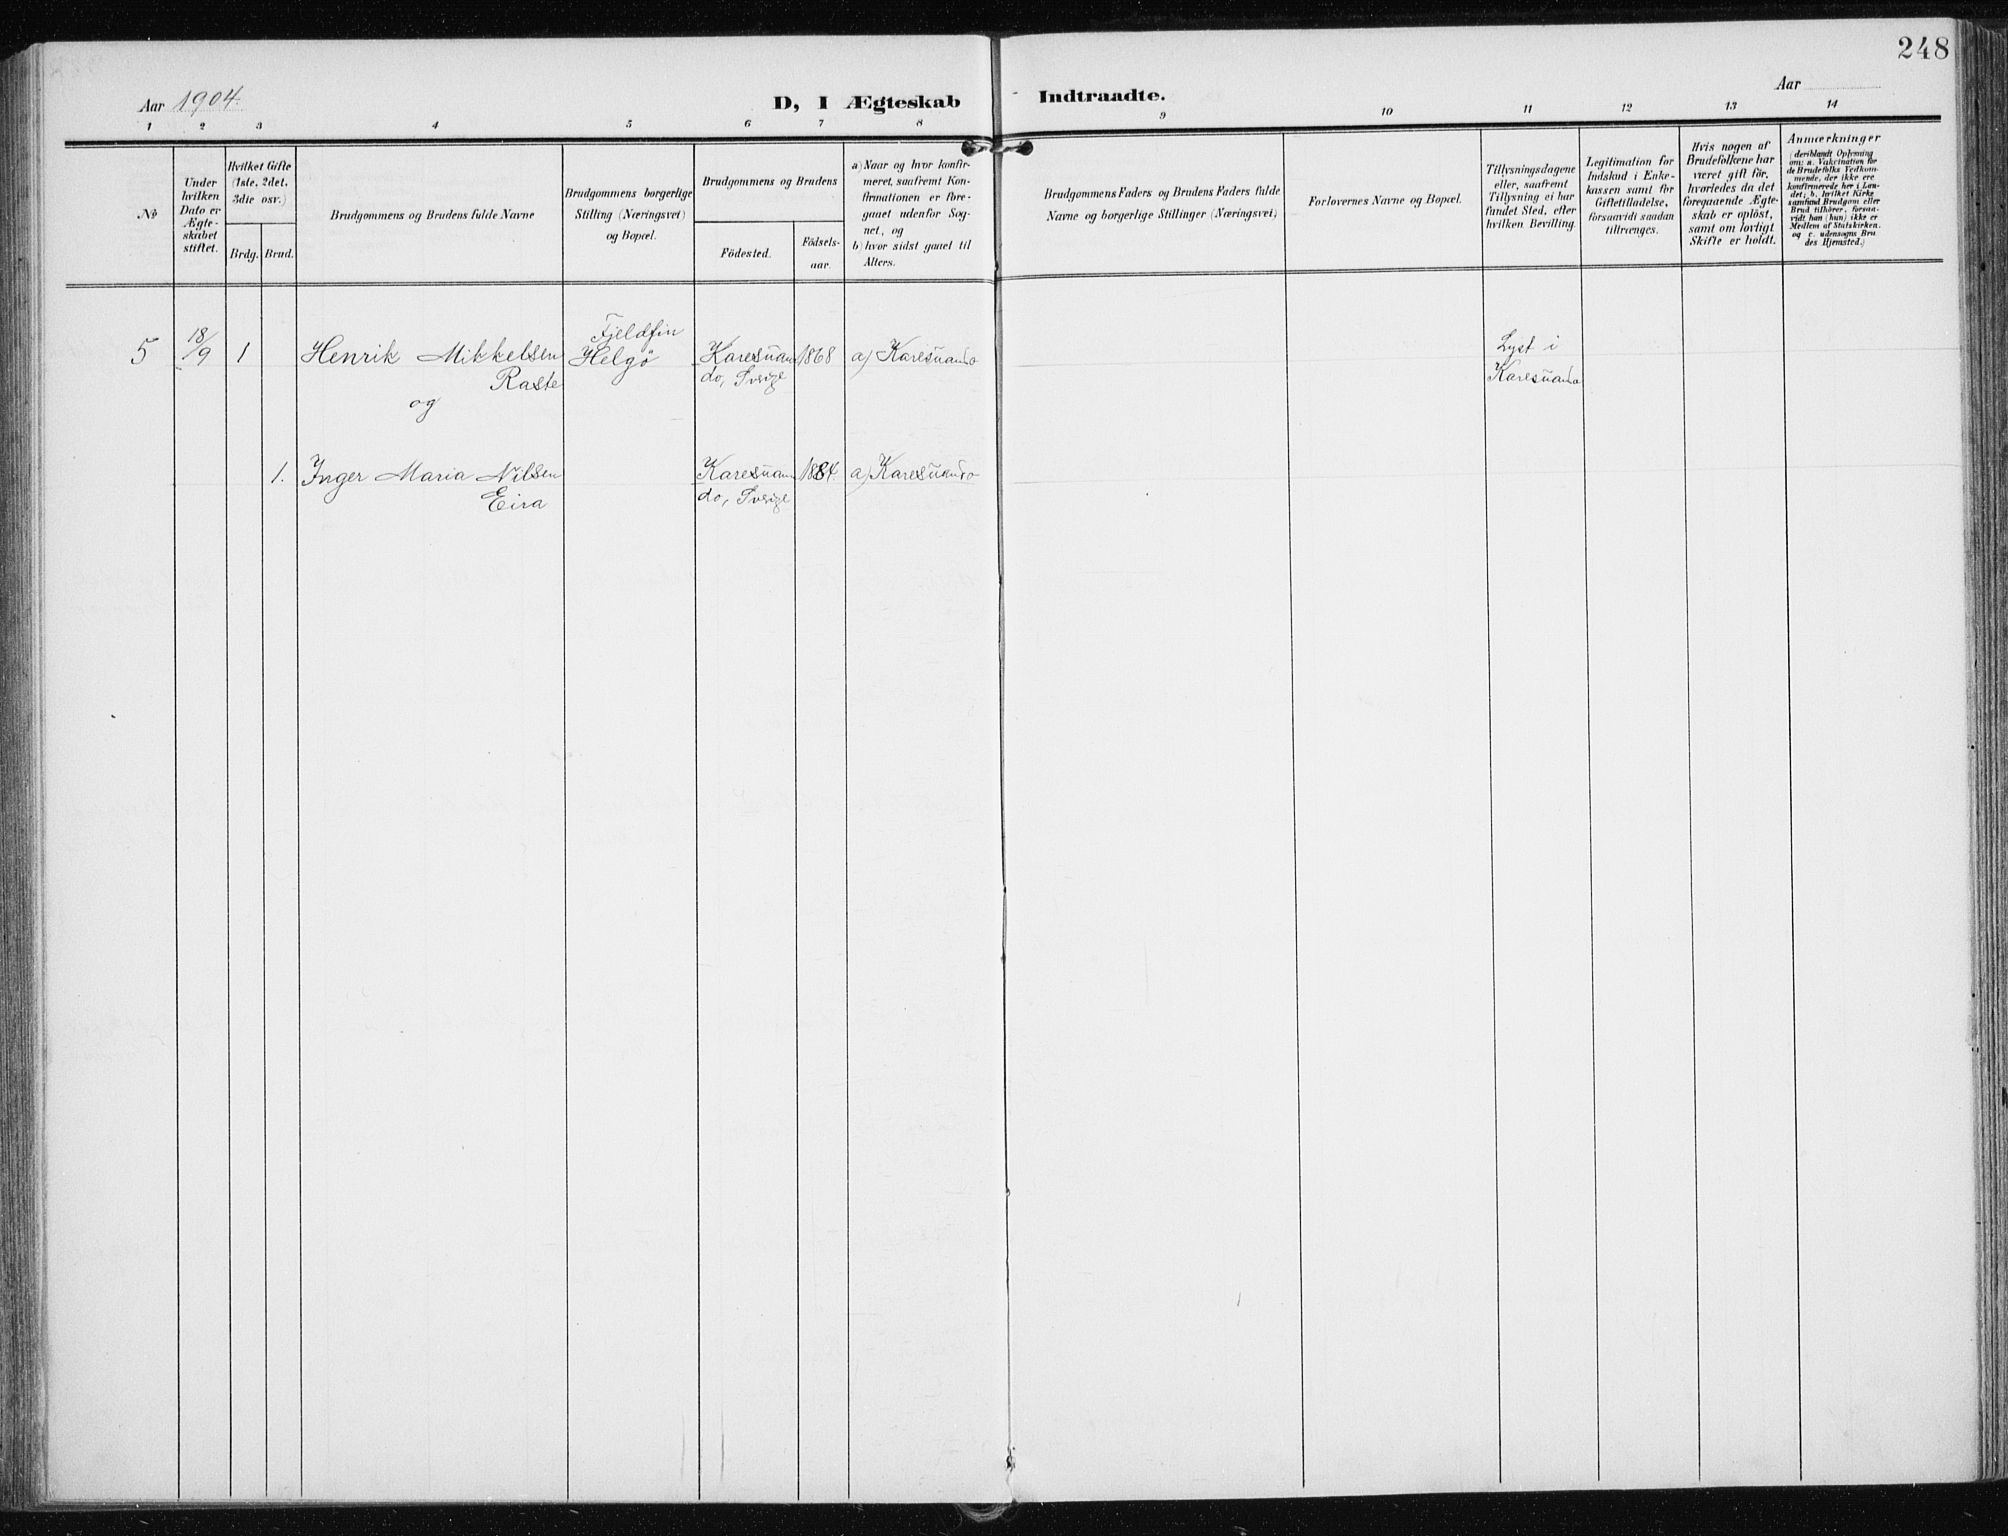 248
Aar 1904.
D, I Ægteskab Indtraadte.
Aar
1 2 3 4 5 6 7 8 9 10 11 12 13 14
No
Under
hvilken
Dato er
Ægte-
skabet
stiftet.
Hvilket Gifte
(1ste, 2det,
3die osv.)
Brdg. Brud.
Brudgommens og Brudens fulde Navne
Brudgommens borgerlige
Stilling (Næringsvei)
og Bopæl.
Brudgommens og Brudens
Födested.
Födsels-
aar.
a) Naar og hvor konfir-
meret, saafremt Kon-
firmationen er fore-
gaaet udenfor Sog-
net, og
b) hvor sidst gaaet til
Alters.
Brudgommens Faders og Brudens Faders fulde
Navne og borgerlige Stillinger (Næringsvei)
Forlovernes Navne og Bopæl.
Tillysningsdagene
eller, saafremt
Tillysning ei har
fundet Sted, efter
hvilken Bevilling.
Legitimation for
Indskud i Enke-
kassen samt for
Giftetilladelse,
forsaavidt saadan
tiltrænges.
Hvis nogen af
Brudefolkene har
været gift før,
hvorledes da det
foregaaende Ægte-
skab er oplöst,
samt om lovligt
Skifte er holdt.
Anmærkninger
(deriblandt Oplysning
om: a. Vakcination for
de Brudefolks Vedkom-
mende, der ikke ere
konfirmerede her i Lan-
det; b. hvilket Kirke
samfund Brudgom eller
Brud tilhörer, forsaa-
vidt han (hun) ikke er
Medlem af Statskirken.
og c. udensogns Bru
des Hjemsted.)
5 18/9 1 Henrik Mikkelsen
Raste
og
Fjeldfin
Helgø
Karesuan
do, Sverige
1868
a) Karesuando
Lyst i
Karesuando
1. Inger Maria Nilsen
Eira
Karesuan
do, Sverige
1884.
a) Karesuando